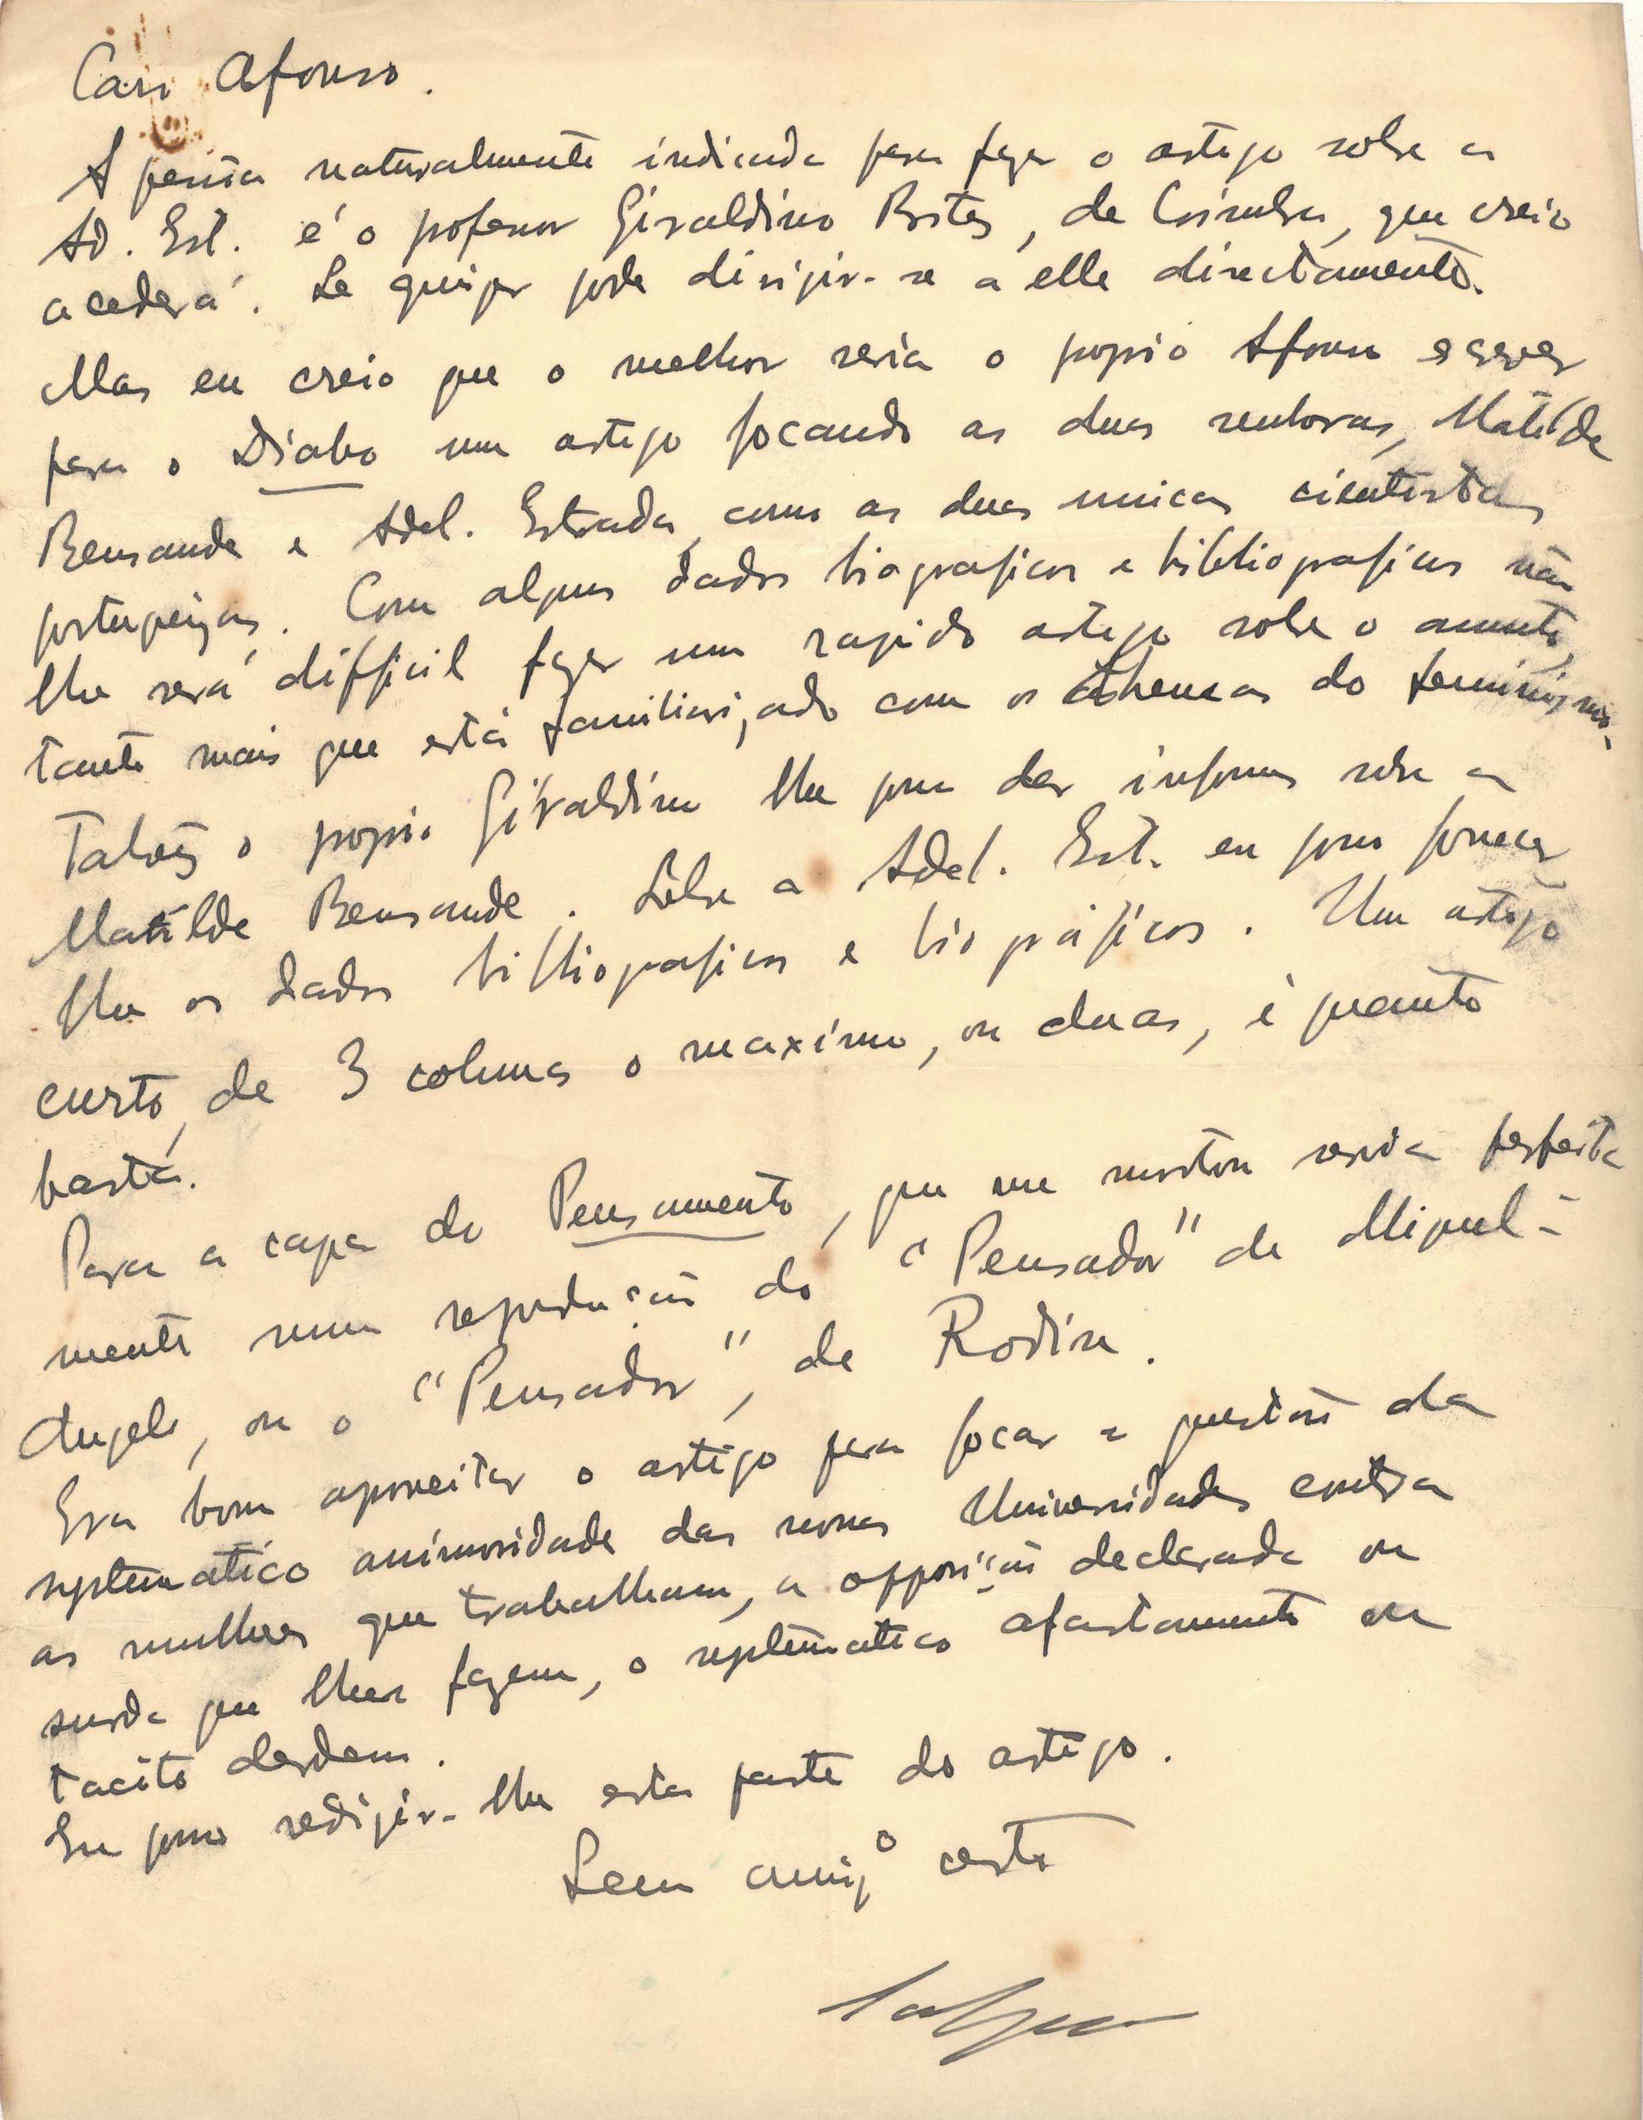 Caro Afonso.
A pessoa naturalmente indicada para fazer o artigo sobre a
Ad. Est. é o professor Giraldino Brites, de Coimbra, que creio
acederá. Se quizer pode dirigir-se a elle directamente.
Mas eu creio que o melhor seria o proprio Afonso escrever
para o Diabo um artigo focando as duas senhoras, Matilde
Bensaude e Adel. Estrada, como as duas unicas cientistas
portuguezas. Com alguns dados biograficos e bibliograficos não
lhe será difficil fazer um rapido artigo sobre o assunto,
tanto mais que está familiarizado com os themas do feminismo.
Talvez o proprio Giraldino lhe possa dar informes sobre a
Matilde Bensaude. Sobre a Adel. Est. eu posso fornecer
lhe os dados bibliograficos e biográficos. Um artigo
curto, de 3 colunas o maximo, ou duas, é quanto
basta.
Para a capa do Pensamento, que me mostrou servia perfeita
mente uma reprodução do "Pensador" de Miguel-
Angelo, ou o "Pensador", de Rodin.
Era bom aproveitar o artigo para focar a questão da
systematico animosidade das nossas Universidades contra
as mulheres que trabalham, a opposição declarada ou
surda que lhes fazem, o systematico afastamento ou
tacito desdem.
Eu posso redigir-lhe esta parte do artigo.
Seu amigo certo